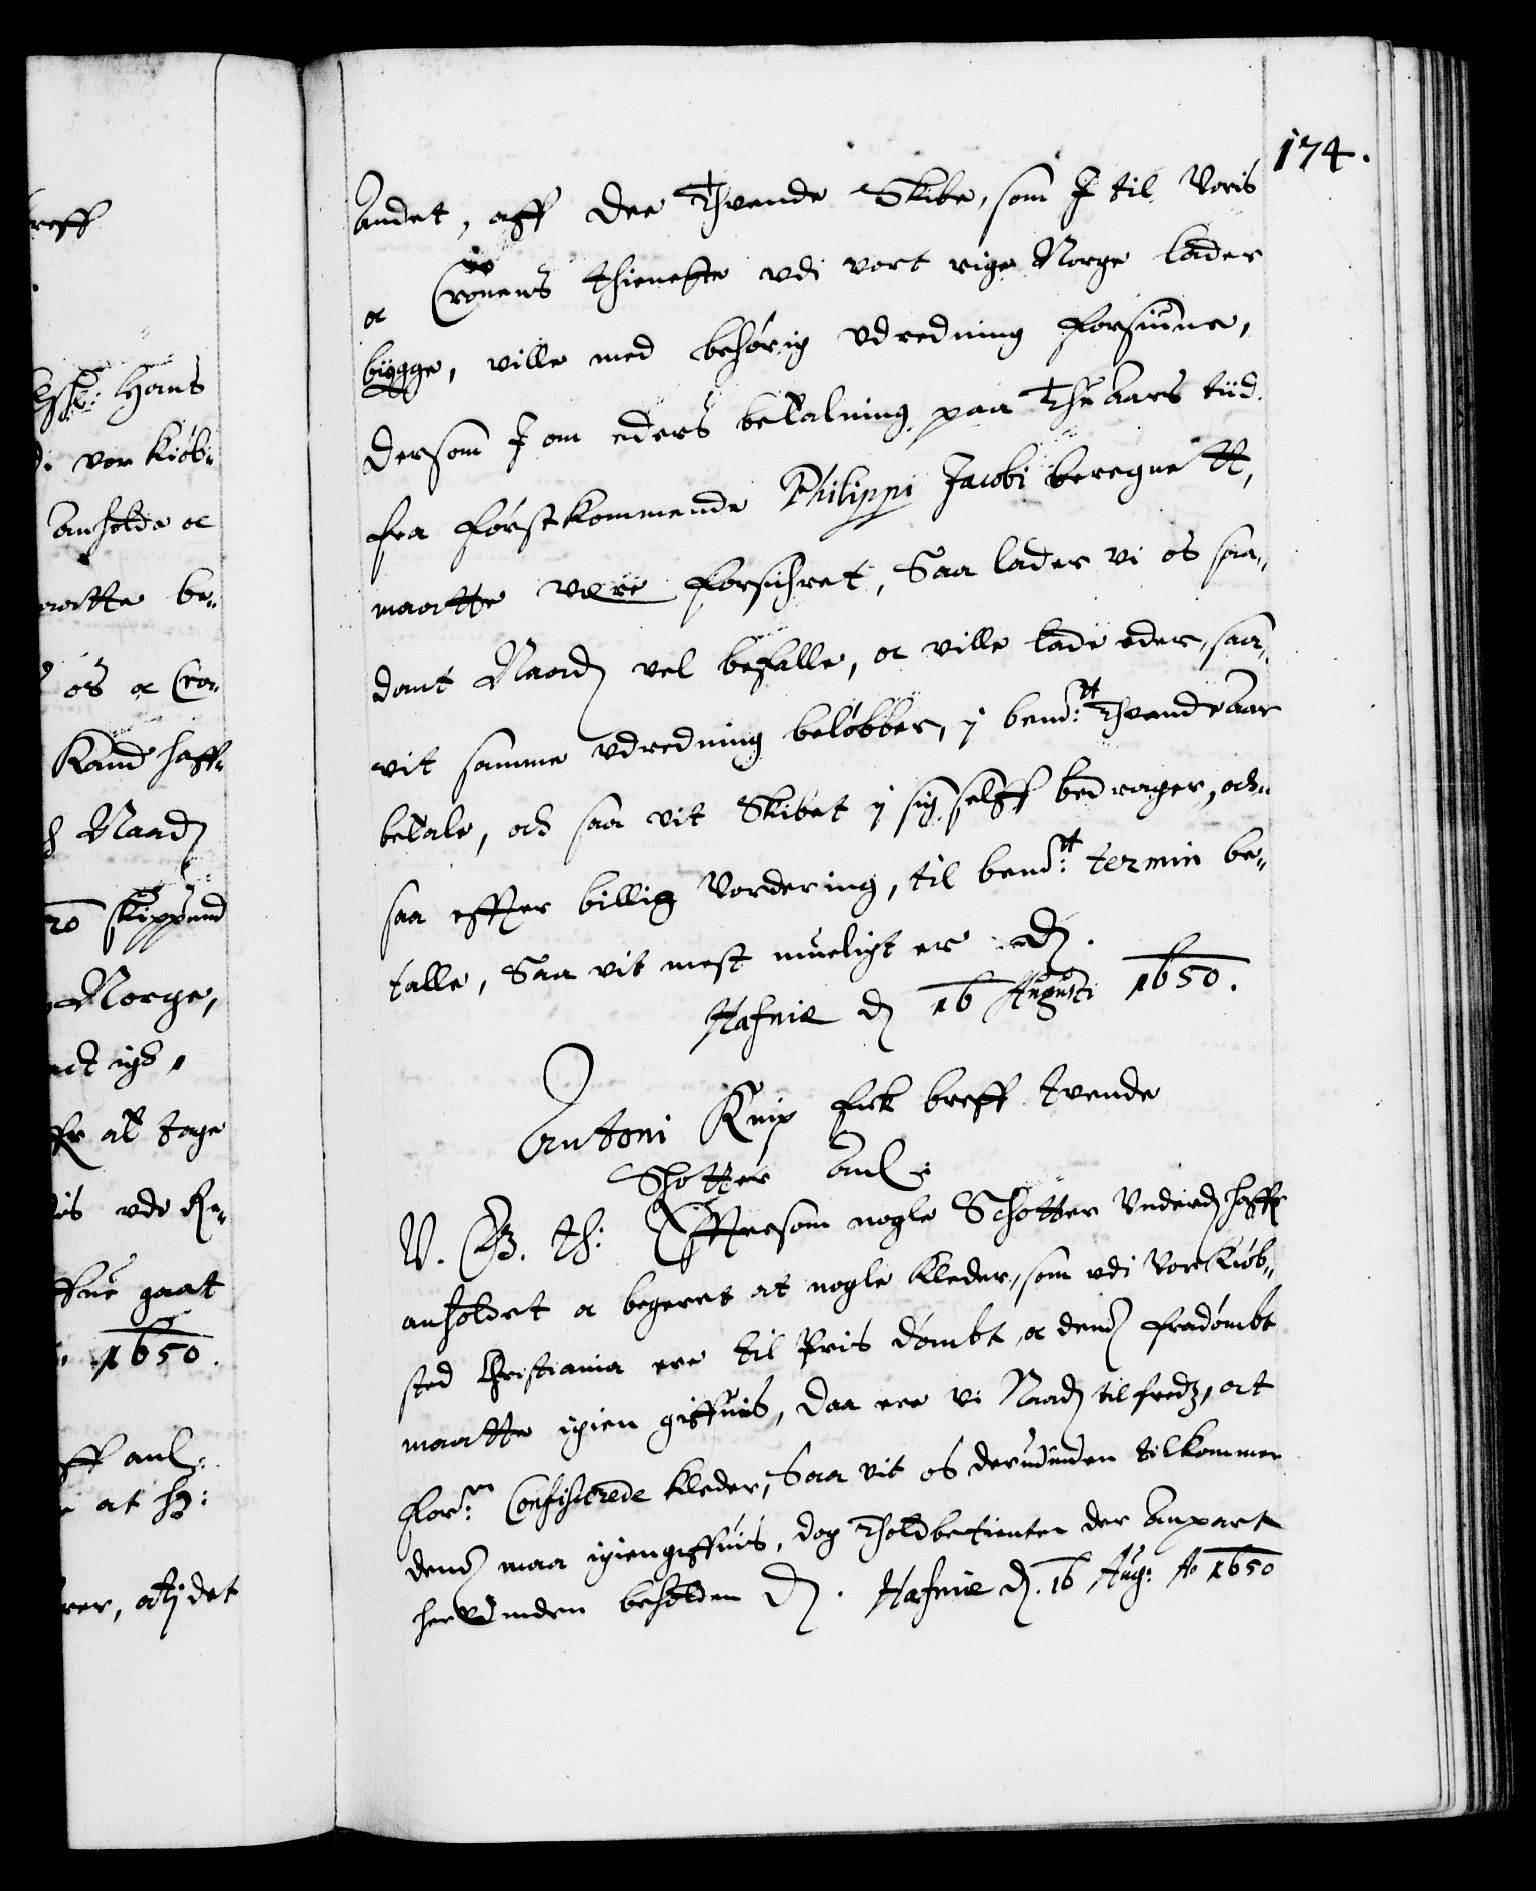 174.
Andet, aff dee Thvende Skibe, som I til Voris
oc Cronens thieneste vdi vort rige Norge lader
bÿgge, ville med behørig vdredning forsiune,
dersom I om eders betalning paa Thu Aars tiid
fra førstkommende Philippi Jacobi beregnett,
maatte være forsichret, Saa lader vi os saa„
dant Naadʒ vel befalle, oc ville lade eder, saa„
vit samme vdredning beløbber, i bemᵗᵗ: Thvende Aar
betale, och saa vit Skibet i sig selff bedrager, och„
saa effter billig Vordering, til bemᵗᵗ: termin be„
talle, Saa vit mest mueligt er
Hafniæ dʒ 16 Augusti 1650.
Antoni Knip fick breff tvende
Skotter anl:
V. G. th: Effttersom nogle Schotter Underdʒ haffr
anholdet oc begeret at nogle kleder, som vdi Vor kiøb„
sted Christiania ere til Pris dømbt oc dennem fradømbt
maatte igien giffuis, daa ere vi Naadʒ tilfredz, at
forᵐᵉ: Confiscerede kleder, Saa vit os derudinden tilkommer
dennem maa igiengiffuis, dog Tholdbetienter der Anpart
herudinden beholden Dʒ. Hafniæ dʒ. 16 Aug: Ao 1650
reff
Hans
vor kiøb„
Anholde oc
maatte be„
os oc Cro„
Kand haff„
Naadʒ
20 skippund
Norge,
at tage
vdi
gaat
1650.
ff anl:
at
det